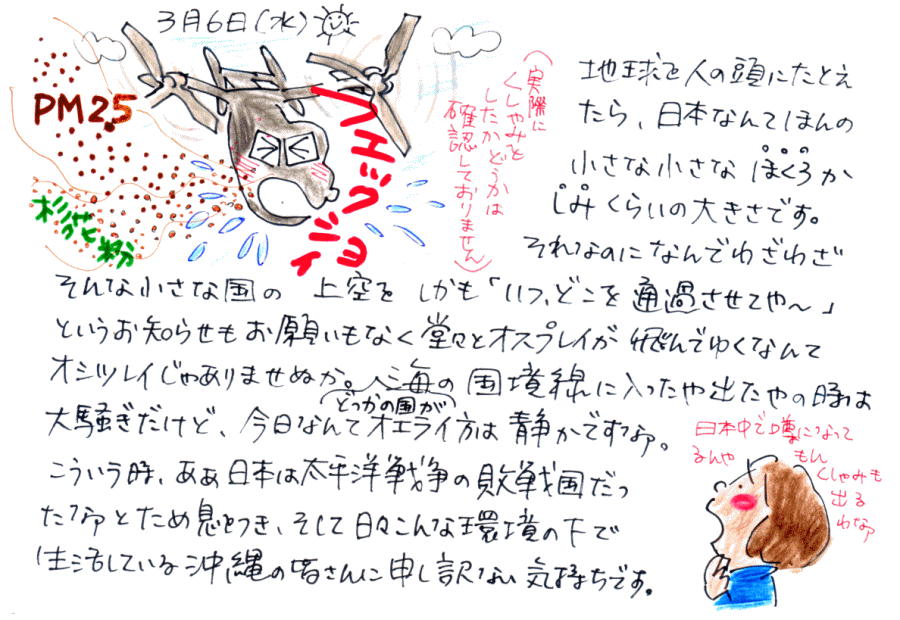 3月6日(水)
PM25
杉花粉
ハエックショイ
(実際に
くしゃみを
したかどうかは
確認しておりません)
地球を人の頭にたとえ
たら、日本なんてほんの
小さな小さなほくろか
しみくらいの大きさです。
それなのになんでわざわざ
そんな小さな国の 上空を しかも「いつ、どこを通過させてや〜」
というお知らせもお願いもなく堂々とオスプレイが飛んでゆくなんて
オシツレイじゃありませぬか。海の国境線に入ったや出たやの時は
どっかの国が
大騒ぎだけど、今日なんてオエライ方は静かですなァ。
こういう時、ああ日本は太平洋戦争の敗戦国だっ
たなァとため息をつき、そして日々こんな環境の下で
生活している沖縄の皆さんに申し訳ない気持ちです。
日本中で噂になって
るんや
もん
くしゃみも
出る
わなァ